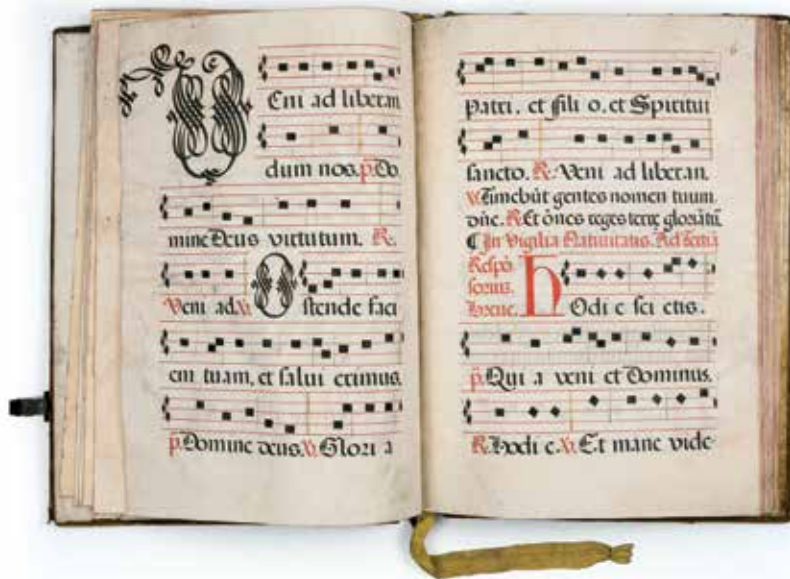 VEni ad liberan
dum nos. p̄. Do
mine Deus virtutum. R.
Veni ad. V. Ostende faci
em tuam, et salui erimus.
p̄. Domine deus. V. Glori a
6
Patri. et ffili o. et Spiritui
sancto. R. Veni ad liberan.
V. Timebūt gentes nomen tuum
dñe. R. Et ōnes reges terrę gloriā tuā
In Vigilia Natiuitatis. Ad Tertiā
Respō
sorius.
breue.
Hodi e sci etis.
p̄. Qui a veni et Dominus.
R. hodi e. V. Et mane vide